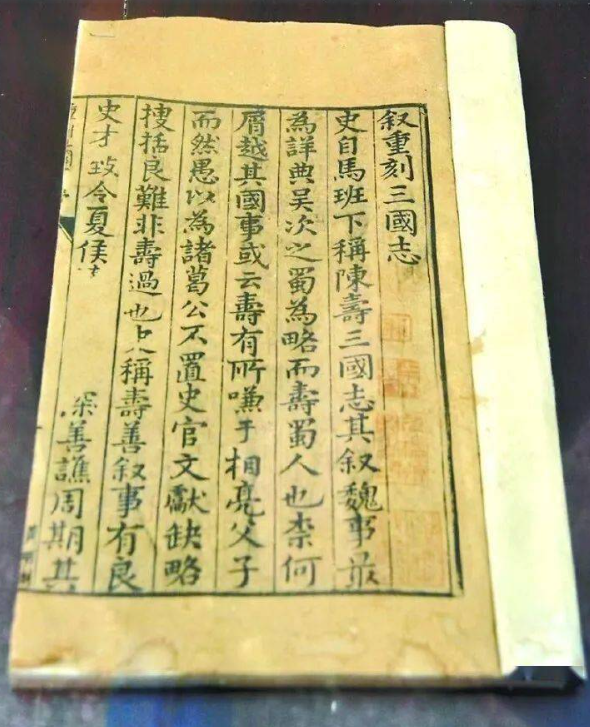 叙重刻三國志
史自馬班下稱陳壽三國志其叙魏事最
為詳典吴次之蜀為略而壽蜀人也柰何
屑越其國事或云壽有所嗛于相亮父子
而然愚以為諸葛公不置史官文獻缺略
搜括良難非壽過也史稱壽善叙事有良
史才致令夏侯 善譙周期其